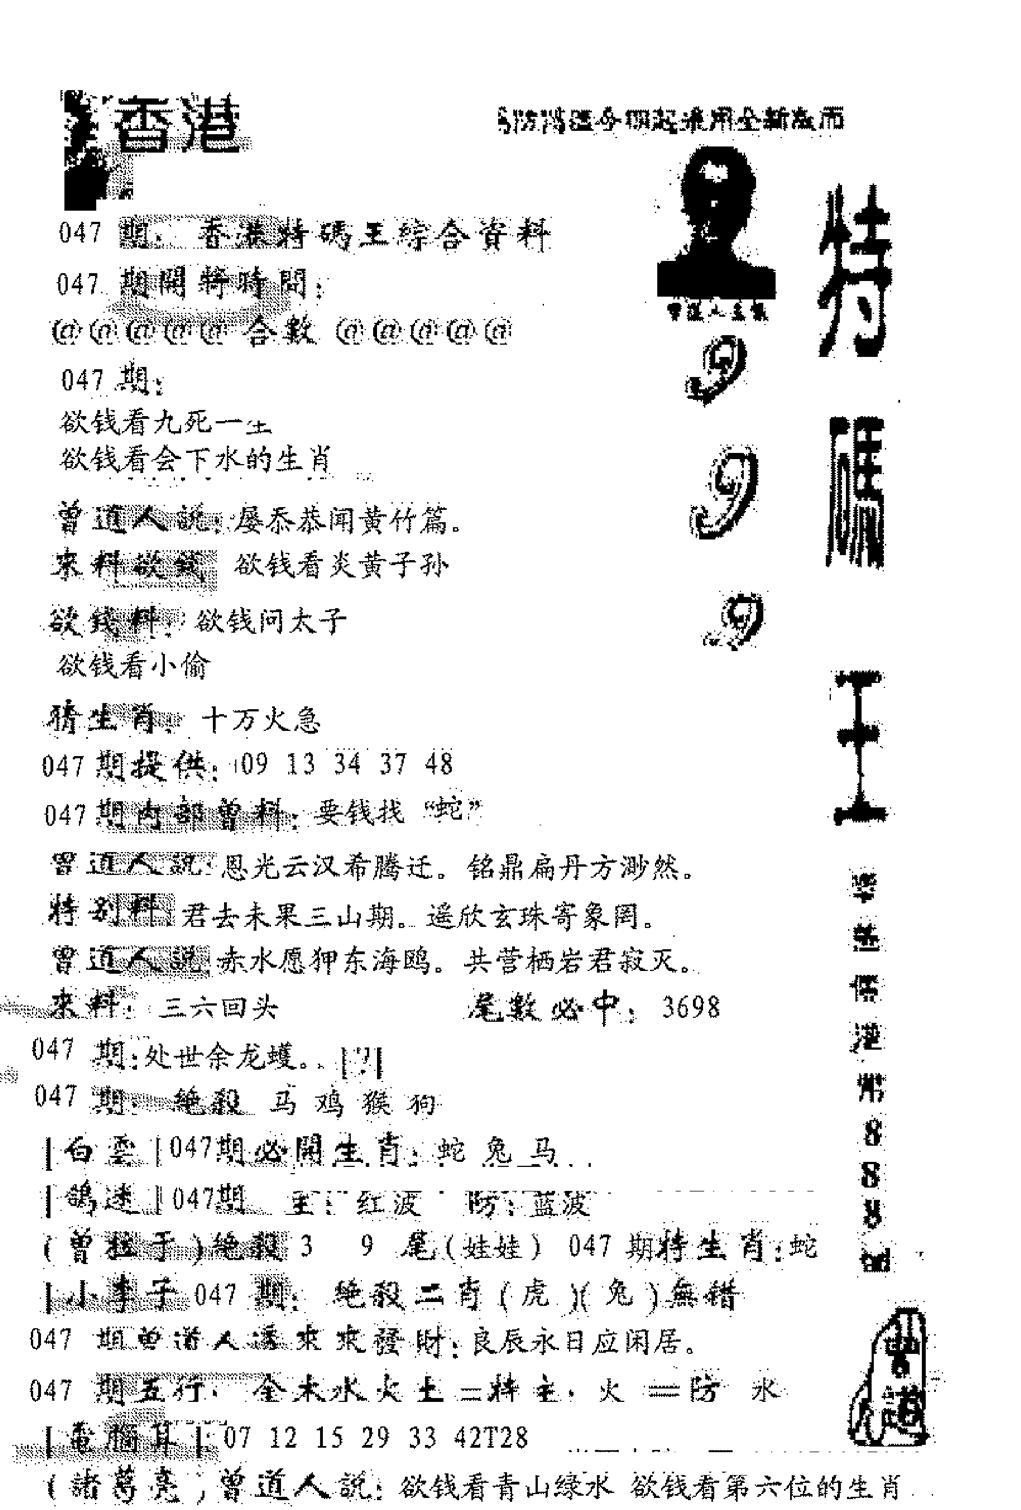 香港
防濫今期起采用全新版面
047 期: 香港特碼王綜合資料
047 期開獎時間:
@@@@@ 合數 @@@@@
047 期:
欲钱看九死一生
欲钱看会下水的生肖
曾道人説: 屡忝恭闻黄竹篇。
來料欲錢 欲钱看炎黄子孙
欲錢料: 欲钱问太子
欲钱看小偷
猜生肖: 十万火急
047 期提供: 09 13 34 37 48
047 期内部曾料: 要钱找 “蛇”
曾道人説: 恩光云汉希腾迁。 铭鼎扁丹方渺然。
特别料: 君去未果三山期。遥欣玄珠寄象罔。
曾道人説: 赤水愿狎东海鸥。 共营栖岩君寂灭。
來料: 三六回头 尾數必中: 3698
047 期:处世余龙蠖。 |?|
047 期: 絶殺 马 鸡 猴 狗
|白雲|047期必開生肖: 蛇 兔 马
|鴿迷|047期 主: 红波 防: 蓝波
(曾拉于)絶殺 3 9 尾(娃娃) 047 期特生肖:蛇
|小李子 047 期: 絶殺二肖(虎)(兔)無錯
047 期曾道人透來來發財:良辰永日应闲居。
047 期五行: 金木水火土=特主: 火 =防 水
|電腦算|:07 12 15 29 33 42T28
(諸葛亮)曾道人説: 欲钱看青山绿水 欲钱看第六位的生肖
曾道人主氣
9
9
9
特
碼
王
港
幣
8
8
8
曾
道